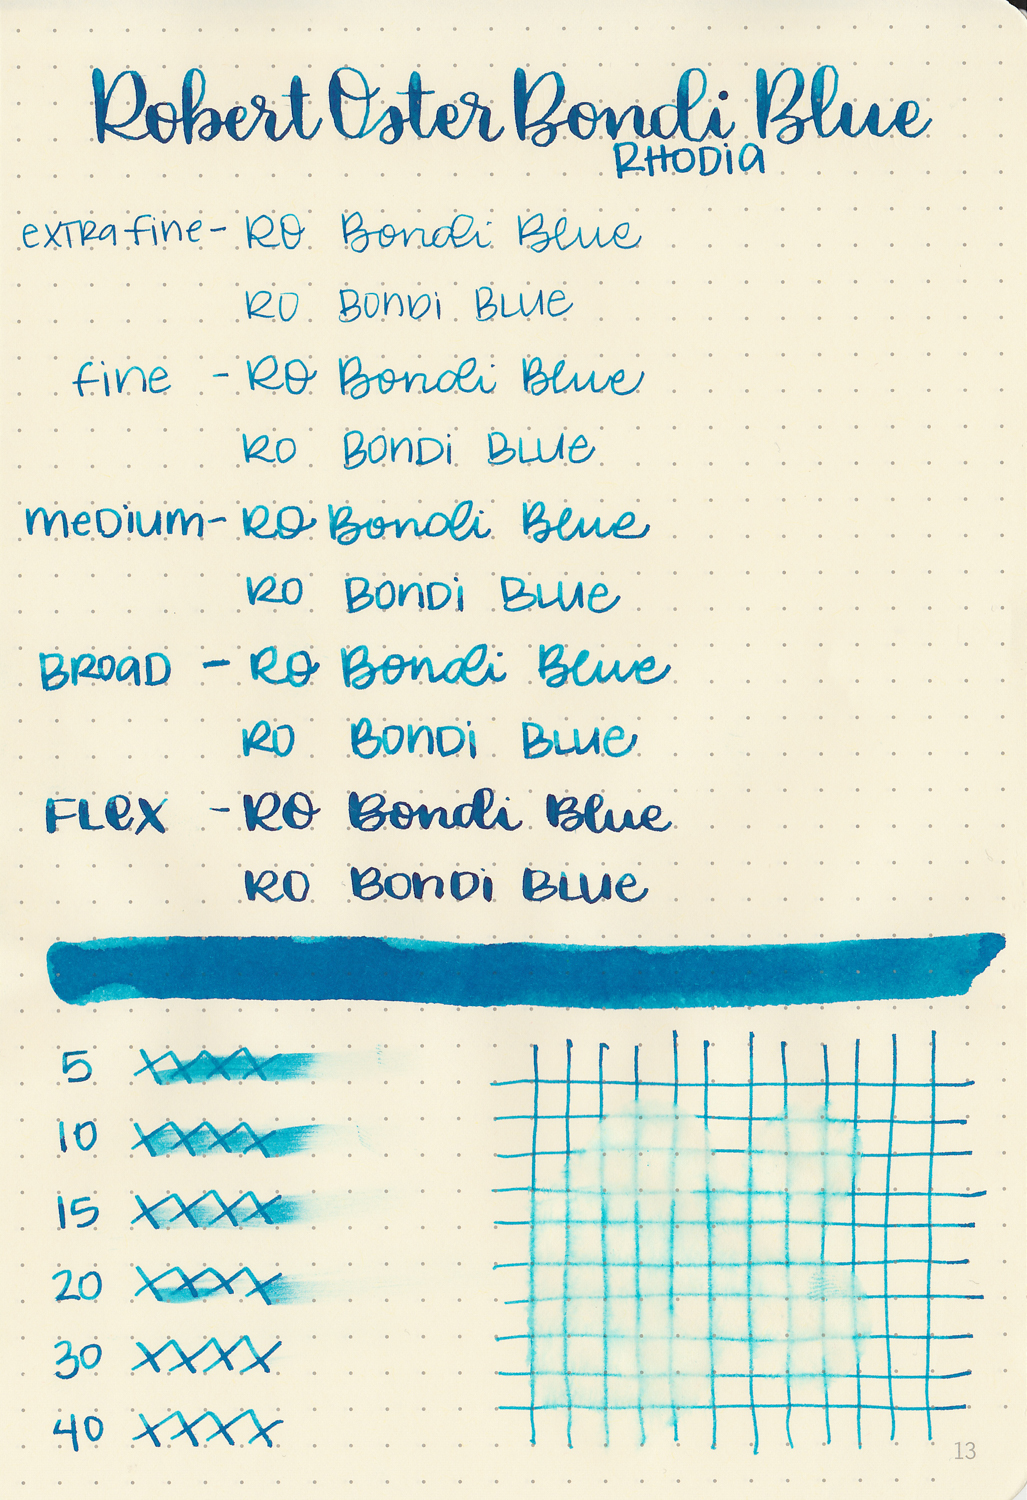 Robert Oster Bondi Blue
RHODIA
extra fine - RO Bondi Blue
RO BONDI BLUE
fine - RO Bondi Blue
RO BONDI BLUE
medium - RO Bondi Blue
RO BONDI BLUE
BROAD - RO Bondi Blue
RO BONDI BLUE
FLEX - RO Bondi Blue
RO BONDI BLUE
5 XXXX
10 XXXX
15 XXXX
20 XXXX
30 XXXX
40 XXXX
13